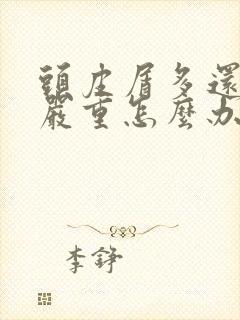 頭皮屑多還
嚴重怎麼办
李錚